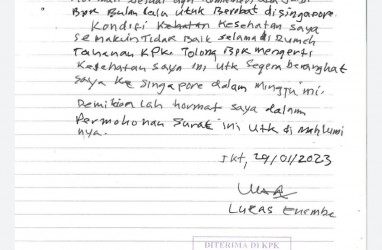 Bpk Bulan lalu utk Berobat disingapore.
Kondisi Kesehatan Kesehatan saya
semakin Tidak Baik selama di Rumah
Tahanan KPK. Tolong Bpk mengerti
Kesehatan saya ini utk Segera berangkat
saya Ke Singapore dalam minggu ini.
Demikian lah hormat saya dalam
Permohonan Surat ini utk di maklumi
nya.
Jkt, 24/01/2023
Lukas Enembe
DITERIMA DI KPK